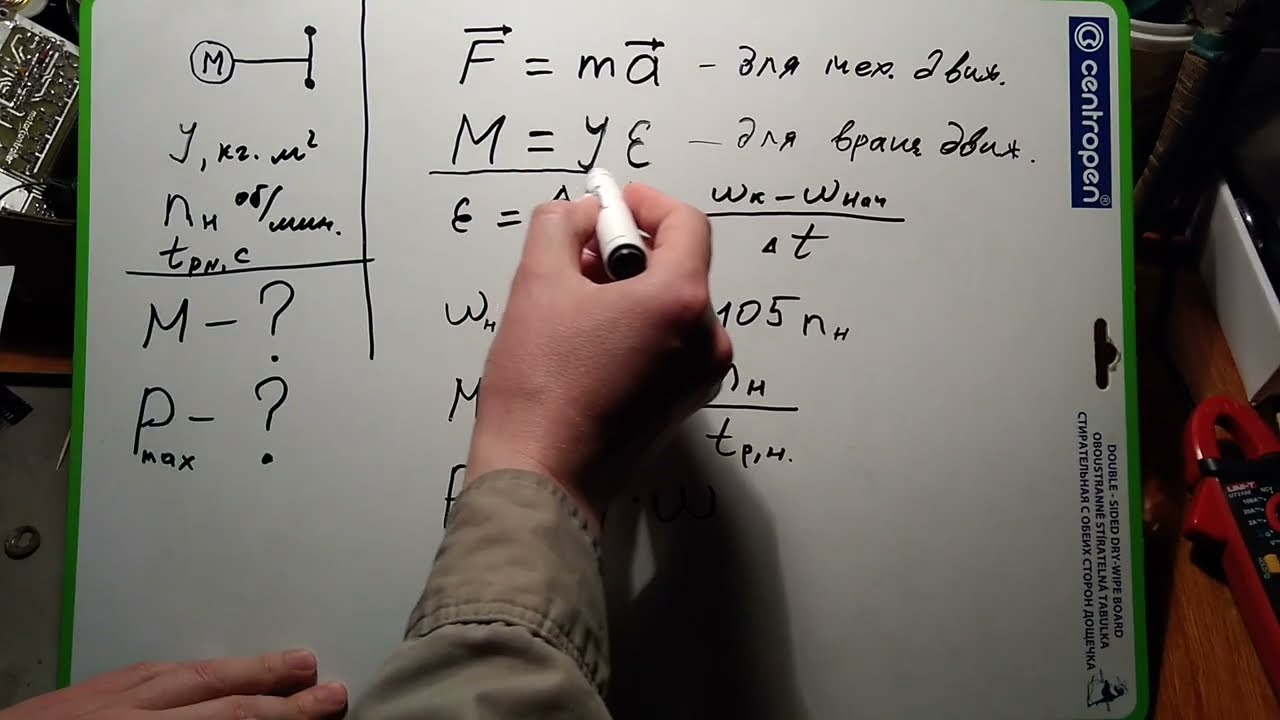 M
У, кг. м²
nн об/мин.
tрн, с
M – ?
Pmax – ?
F = ma – для мех. движ.
M = У ε – для вращ движ.
ε = ωк – ωнач
Δt
ωн 105 nн
M nн
tр,н.
P · ω
centropen
DOUBLE - SIDED DRY-WIPE BOARD
OBOUSTRANNĚ STÍRATELNÁ TABULKA
СТИРАТЕЛЬНАЯ С ОБЕИХ СТОРОН ДОЩЕЧКА
UNI-T